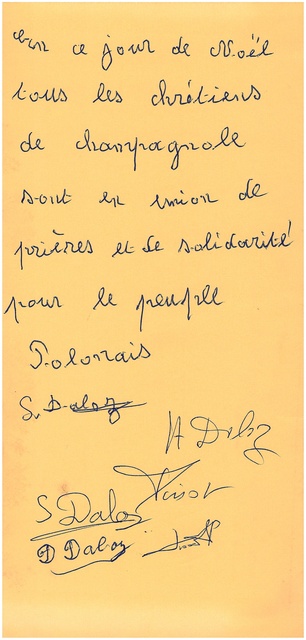 En ce jour de Noël
tous les chrétiens
de champagnole
sont en union de
prières et de solidarité
pour le peuple
Polonais
S. Daloz
A Daloz
S Daloz
D Daloz